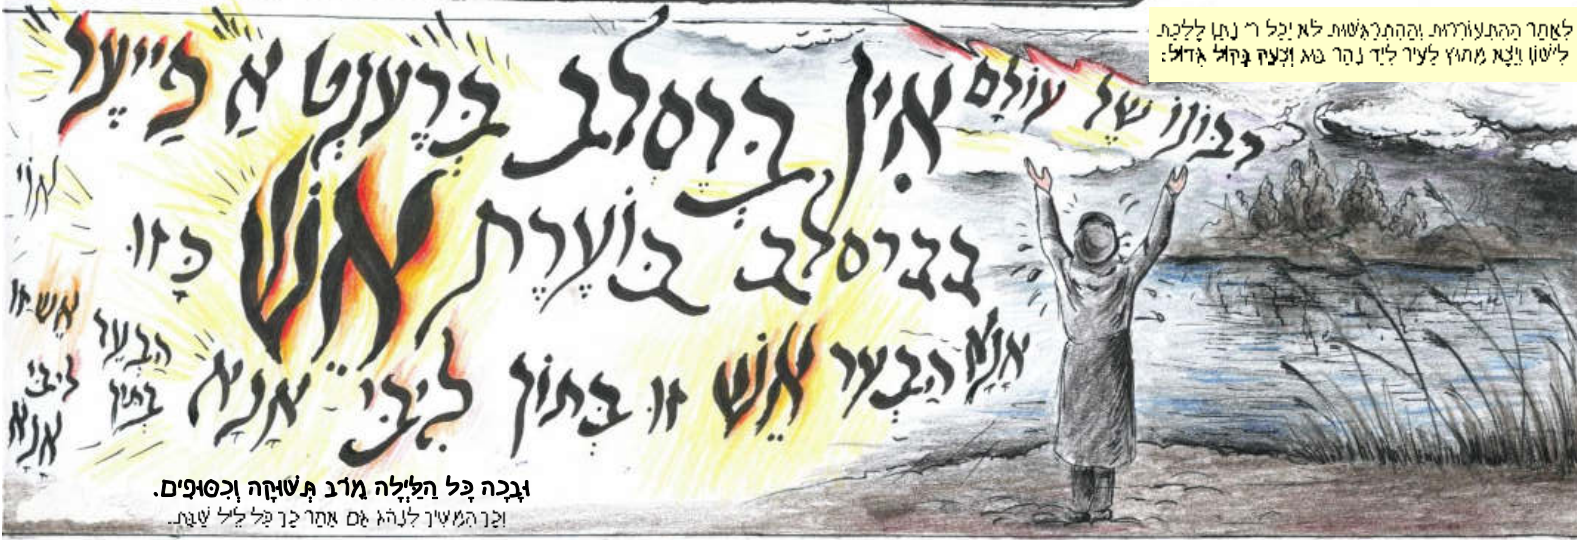 לְאַחַר הַהִתְעוֹרְרוּת וְהַהִתְרַגְּשׁוּת לֹא יָכַל ר' נָתָן לָלֶכֶת
לִישׁוֹן וְיָצָא מִחוּץ לָעִיר לְיַד נְהַר בּוּג וְצָעַק בְּקוֹל גָּדוֹל:
רִבּוֹנוֹ שֶׁל עוֹלָם אִין בְּרֶסְלֶב בְּרֶענְט אַ פַייֶער
בברסלב בּוֹעֶרֶת אֵשׁ כָּזוּ
אָנָּא הַבְעֵר אֵשׁ זוּ בְּתוֹךְ לִיבִּי אָנָּא
הַבְעֵר
אֵשׁ זוּ
בְּתוֹךְ
לִיבִּי
אָנָּא
וּבָכָה כָּל הַלַּיְלָה מֵרֹב תְּשׁוּקָה וְכִסּוּפִים.
וְכָךְ הִמְשִׁיךְ לִנְהֹג גַּם אַחַר כָּךְ כָּל לֵיל שַׁבָּת.